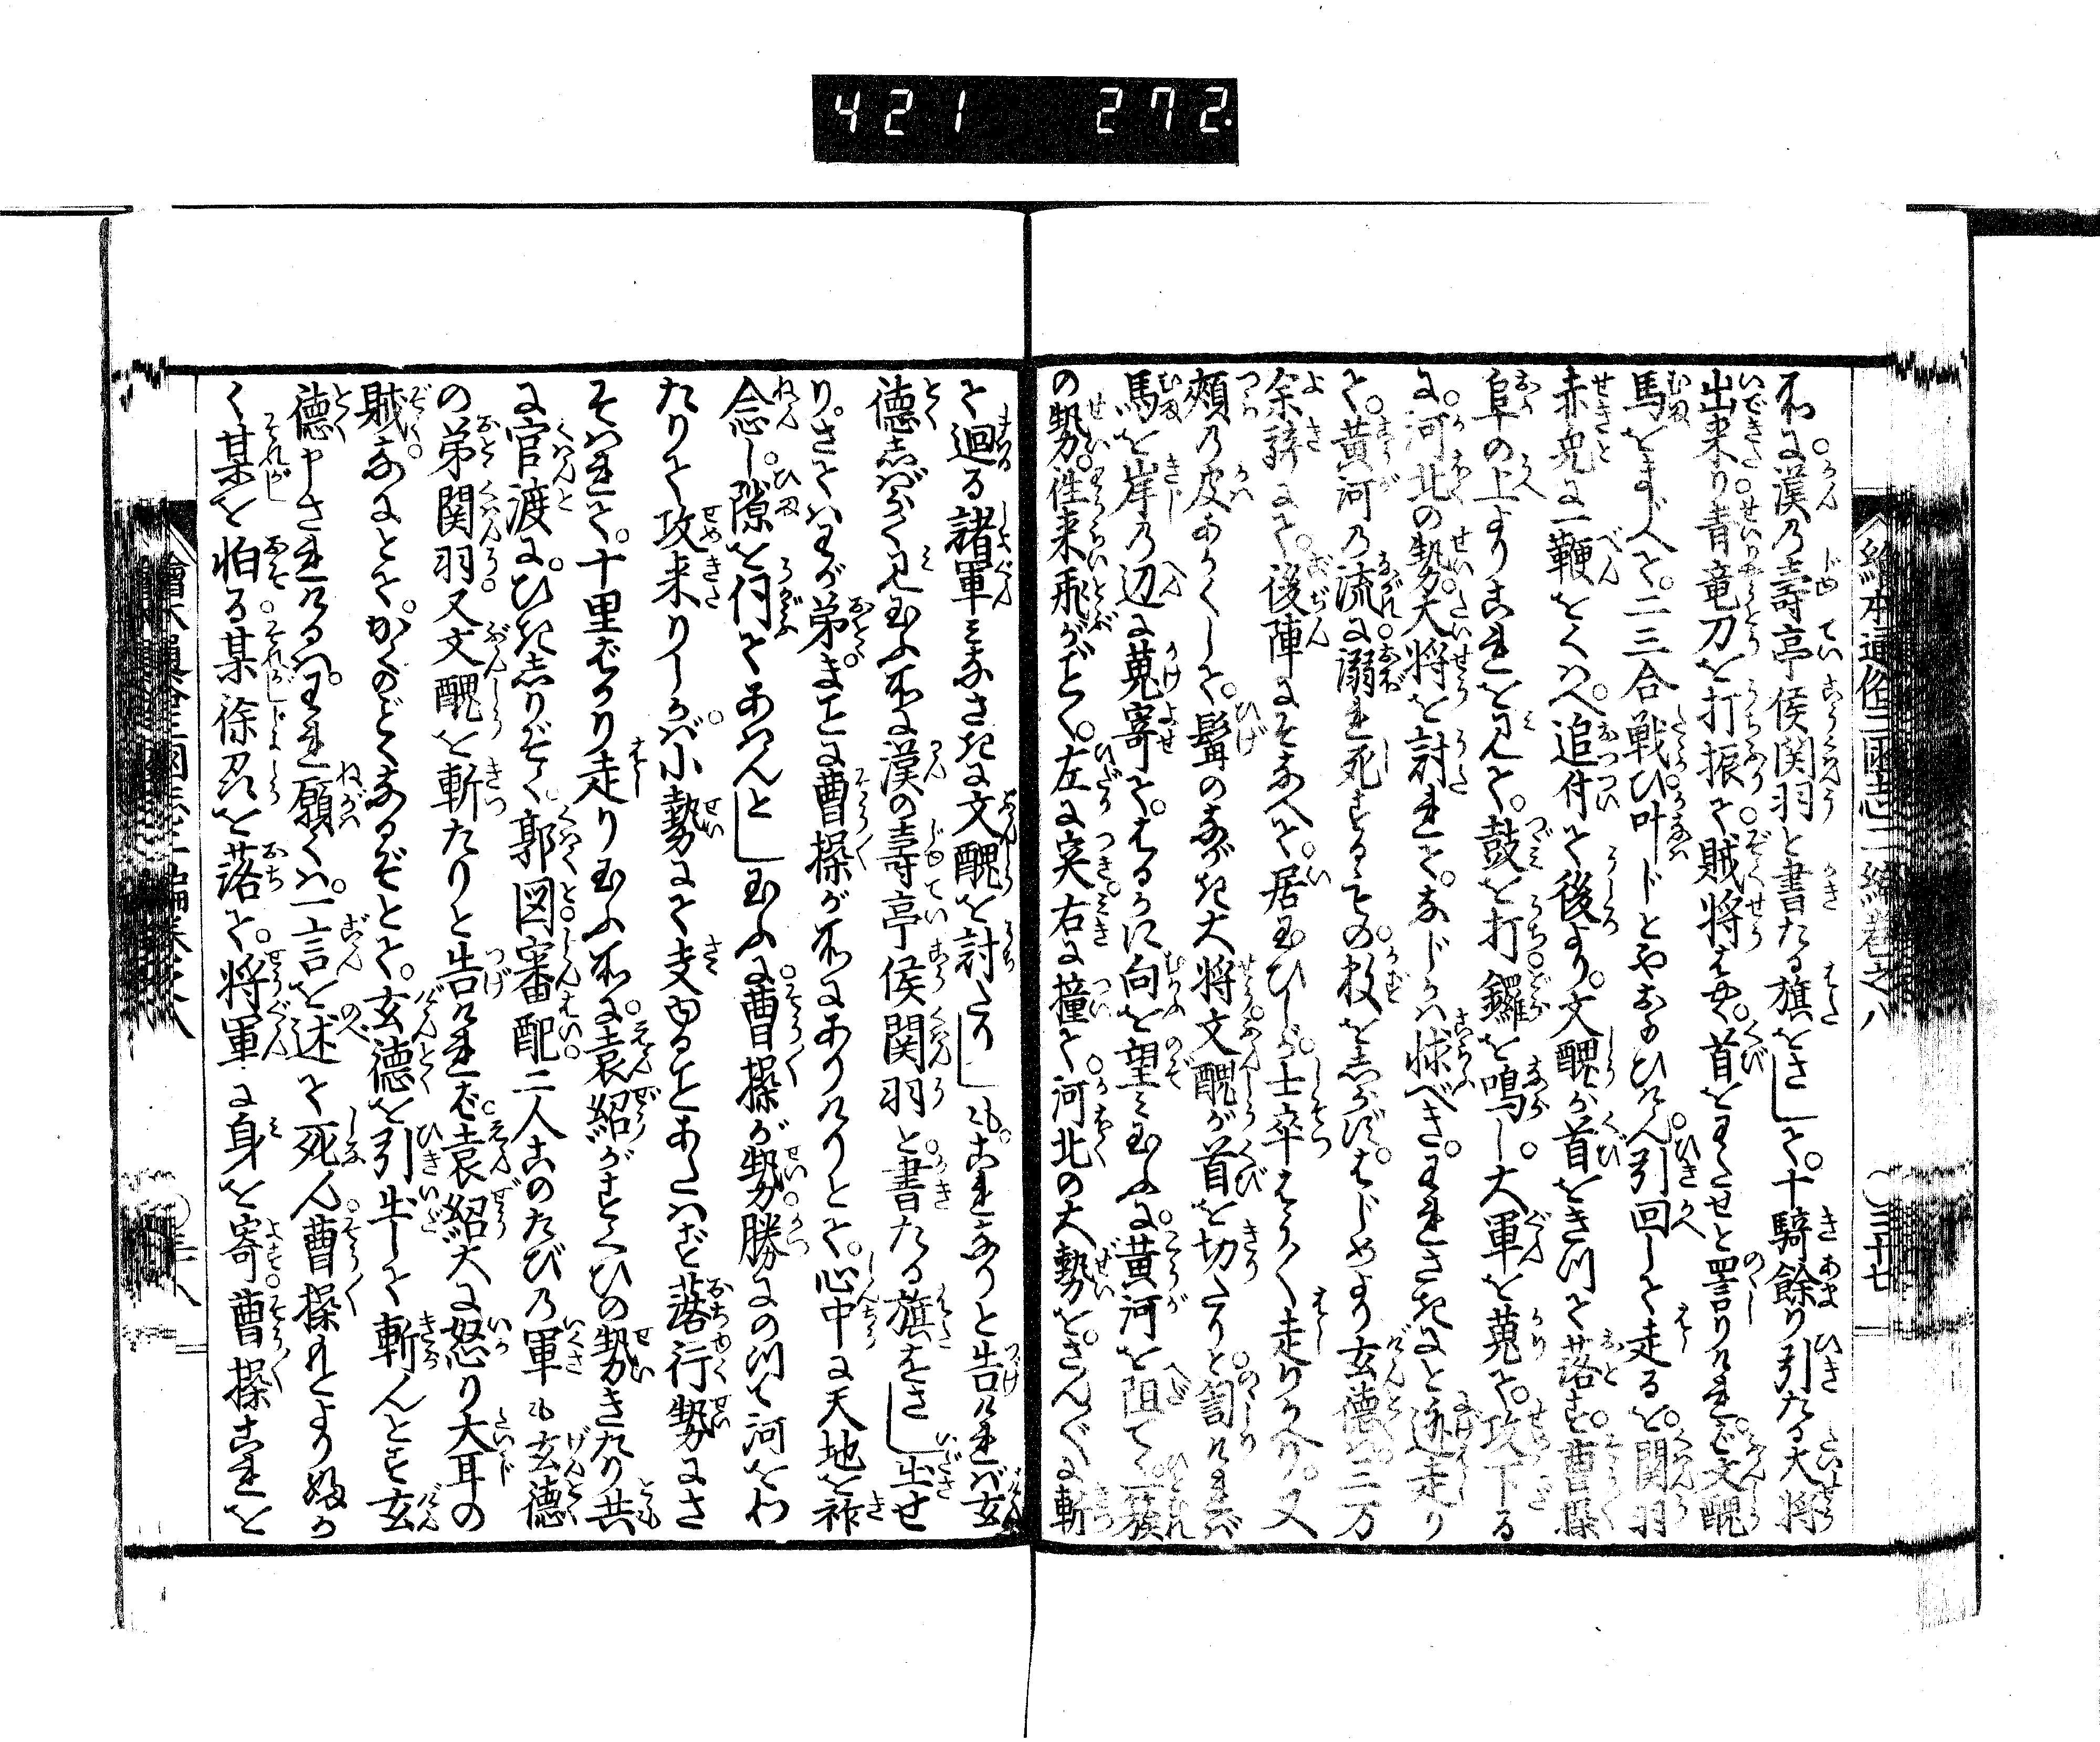 421 272.
絵本通俗三国志二編巻之八 ○三十七
所に。漢の寿亭侯関羽と書たる旗をさして。十騎余り引たる大将
出来り青竜刀を打振て。賊将はや。首をわたせと罵りければ。文醜
馬をまじへて。二三合戦ひ叶じとやおもひけん。引回して走るを。関羽
赤兎に一鞭をくはへ。追付て後より。文醜が首をきつて落す。曹操
阜の上よりこれを見て。鼓を打鑼を鳴し。大軍を麾て。攻下る
に。河北の勢大将を討れて。なじかは怺べき。われさきにと逃走り
て。黄河の流に溺れ死するもの。数をしらず。はじめより玄徳は三万
余騎にて。後陣にそなへて。居玉ひしが。士卒はしく走りかへり。又
頬の皮あかくして。髯のながき大将文醜が首を切たりと訇ければ
馬を岸の辺に驀寄て。はるかに向を望み玉ふに。黄河を阻て。一簇
の勢。往来飛がごとく。左に突右に撞て。河北の大勢を。さんざんに斬
て廻る諸軍みなさきに文醜を討たりしは。これなりと告ければ玄
徳しばらく見玉ふ所に漢の寿亭侯関羽と書たる旗をさし出せ
り。さてはわが弟。まことに曹操が所にありけりとて。心中に天地を祚
念し。隙を伺てあはんとし玉ふに。曹操が勢勝にのつて河をわ
たりて攻来りしかば。小勢にて支ゆることあたはず。落行勢にさ
そはれて。十里ばかり走り玉ふ所に。袁紹がすくひの勢きたり共
に官渡に。ひきしりぞく。郭図審配二人このたびの軍も玄徳
の弟関羽。又文醜を斬たりと告ければ。袁紹大に怒り大耳の
賊。なにとて。かくのごとくなるぞとて。玄徳を引出して斬んとす玄
徳申されけるは。われ願くは。一言を述て死ん曹操もとより好か
く某を怕る某徐州を落て。将軍に身を寄。曹操これを